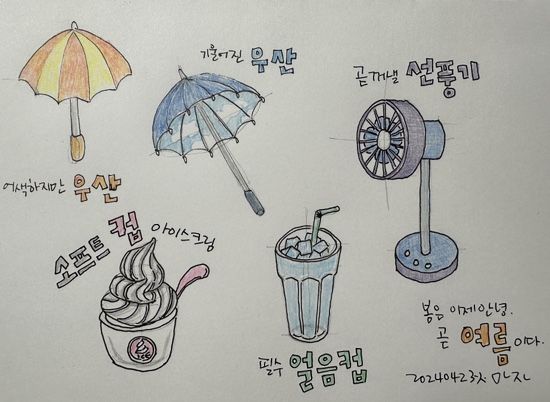 기울어진 우산
곧꺼낼 선풍기
어색하지만 우산
소프트 컵 아이스크림
필수 얼음컵
봄음 이제안녕.
곧 여름이다.